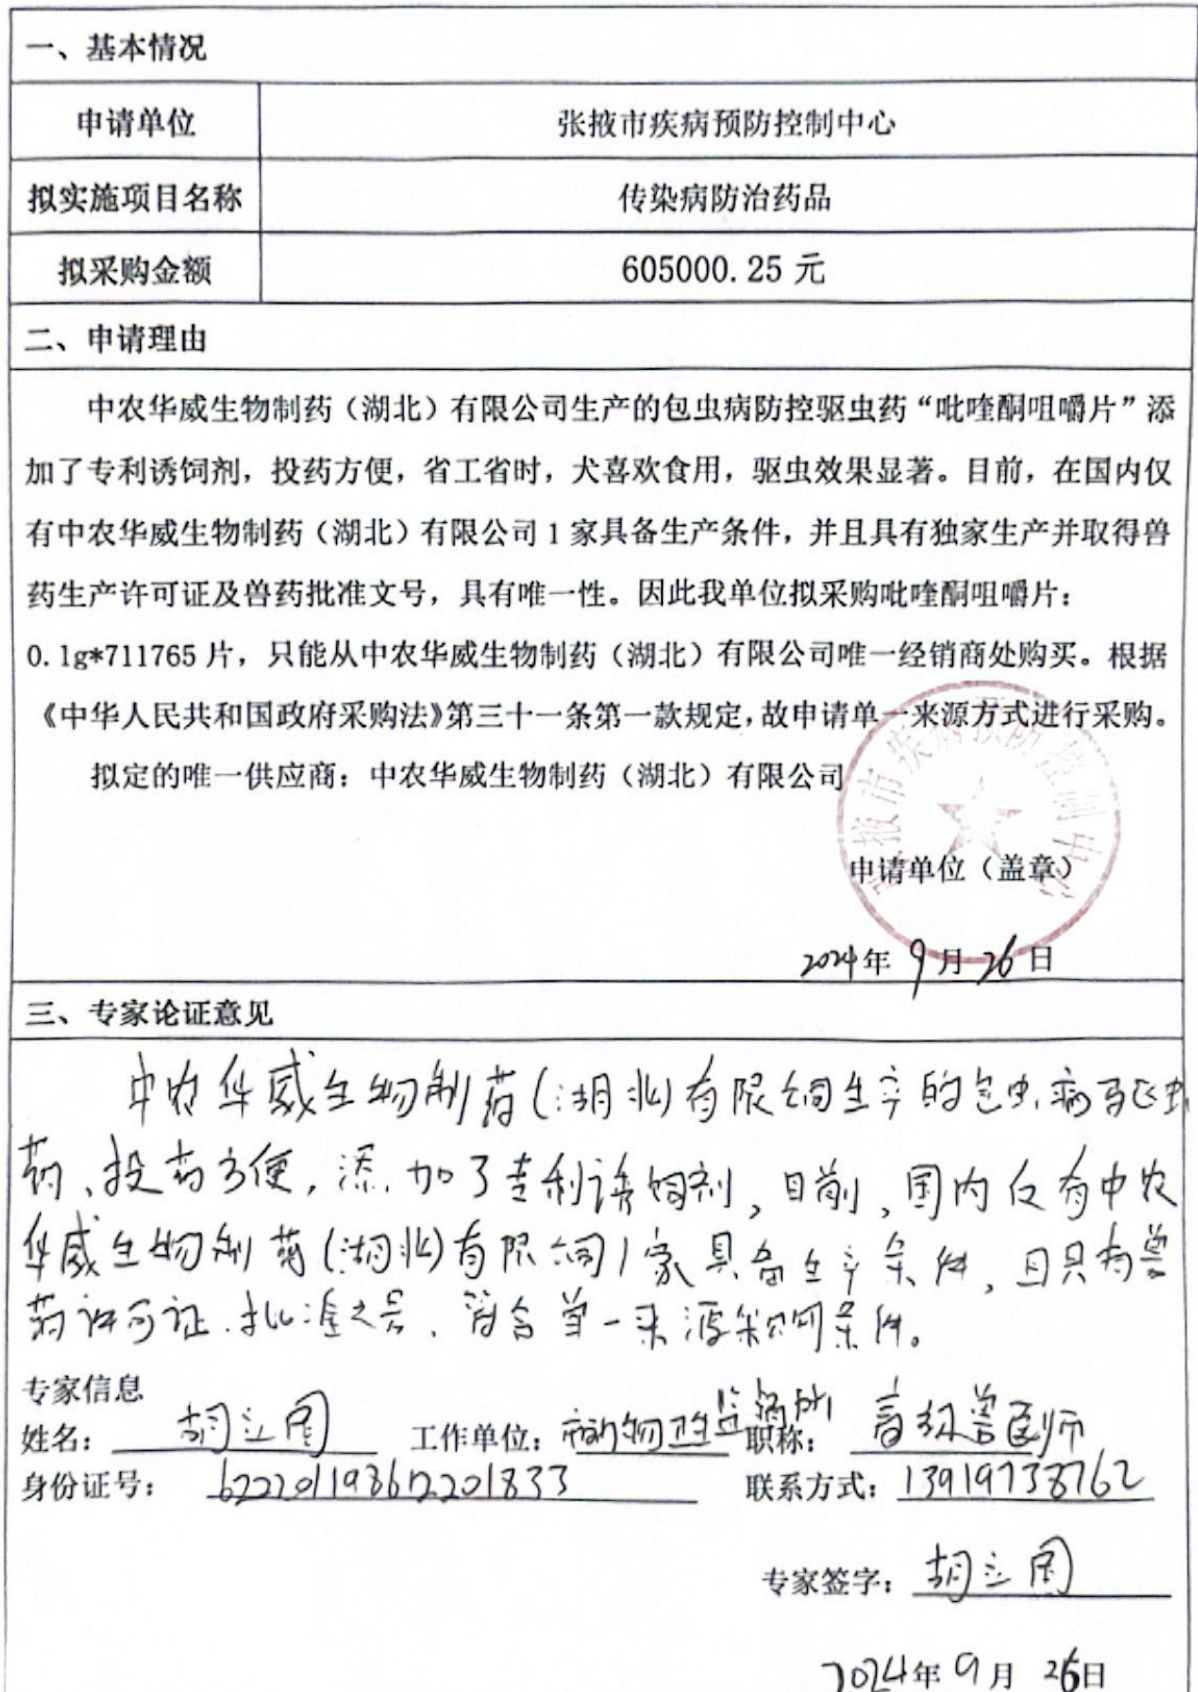 一、基本情况
申请单位 张掖市疾病预防控制中心
拟实施项目名称 传染病防治药品
拟采购金额 605000.25 元
二、申请理由
中农华威生物制药（湖北）有限公司生产的包虫病防控驱虫药“吡喹酮咀嚼片”添
加了专利诱饲剂，投药方便，省工省时，犬喜欢食用，驱虫效果显著。目前，在国内仅
有中农华威生物制药（湖北）有限公司 1 家具备生产条件，并且具有独家生产并取得兽
药生产许可证及兽药批准文号，具有唯一性。因此我单位拟采购吡喹酮咀嚼片：
0.1g*711765 片，只能从中农华威生物制药（湖北）有限公司唯一经销商处购买。根据
《中华人民共和国政府采购法》第三十一条第一款规定，故申请单一来源方式进行采购。
拟定的唯一供应商：中农华威生物制药（湖北）有限公司
张掖市疾病预防控制中心
申请单位（盖章）
2024年 9月 26日
三、专家论证意见
中农华威生物制药(湖北)有限公司生产的包虫病驱虫
药、投药方便，添加了专利诱饲剂，目前，国内仅有中农
华威生物制药(湖北)有限公司1家具备生产条件，且具有兽
药许可证、批准文号，符合单一来源采购条件。
专家信息
姓名： 胡立国 工作单位： 动物卫生监督所 职称： 高级兽医师
身份证号： 联系方式： 13919738762
专家签字： 胡立国
2024年 9月 26日